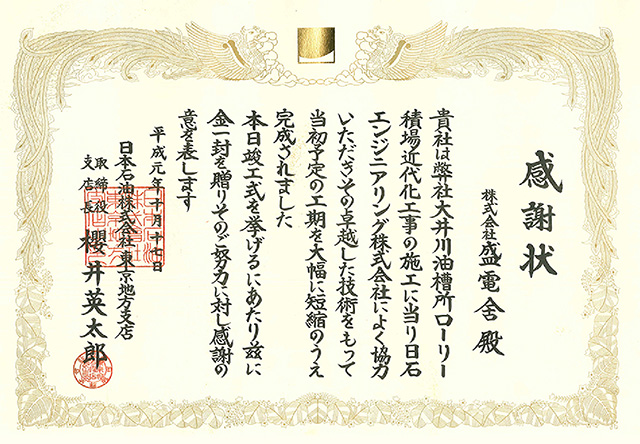 感謝状
株式会社盛電舎殿
貴社は弊社大井川油槽所ローリー
積場近代化工事の施工に当り日石
エンジニアリング株式会社によく協力
いただきその卓越した技術をもって
当初予定の工期を大幅に短縮のうえ
完成されました
本日竣工式を挙げるにあたり玆に
金一封を贈りそのご努力に対し感謝の
意を表します
平成元年十月十七日
日本石油株式会社東京地方支店
取締役
支店長
櫻井英太郎